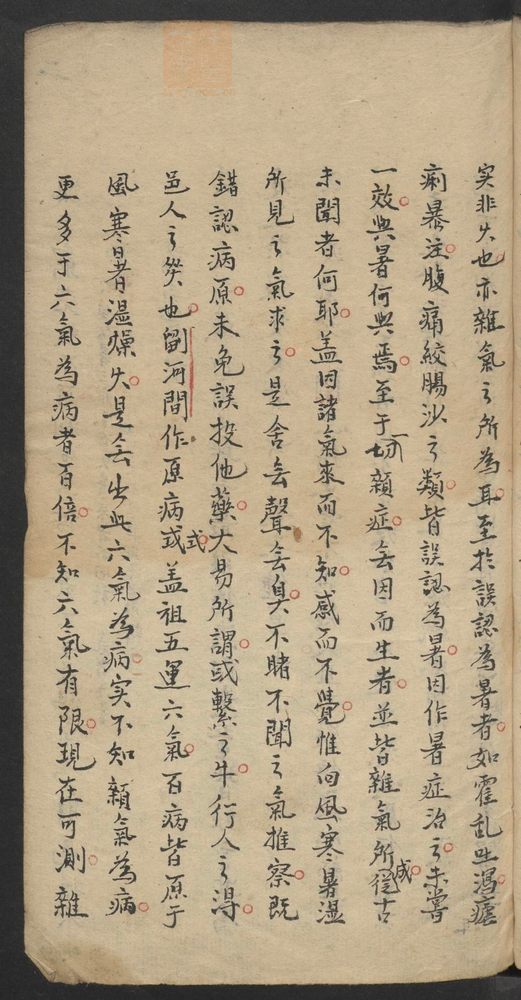 实非火也亦雜氣之所為耳至於誤認為暑者如霍乱吐瀉瘧
痢暴注腹痛絞腸沙之類皆誤認為暑因作暑症治之未嘗
一效與暑何與焉至于一切雜症無因而生者並皆雜氣所成從古
未聞者何耶盖因諸氣來而不知感而不覺惟向風寒暑湿
所見之氣求之是舍無聲無臭不睹不聞之氣推察既
錯認病原未免誤投他藥大易所謂或繫之牛行人之得
邑人之災也劉河間作原病式盖祖五運六氣百病皆原于
風寒暑湿燥火是無出此六氣為病实不知雜氣為病
更多于六氣為病者百倍不知六氣有限現在可測雜